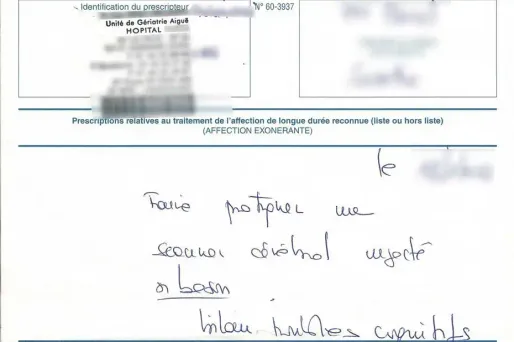 Identification du prescripteur
N° 60-3937
Unité de Gériatrie Aiguë
HOPITAL
Prescriptions relatives au traitement de l'affection de longue durée reconnue (liste ou hors liste)
(AFFECTION EXONERANTE)
le
Faire pratiquer une
scanner cérébral injecté
si besoin
bilan troubles cognitifs